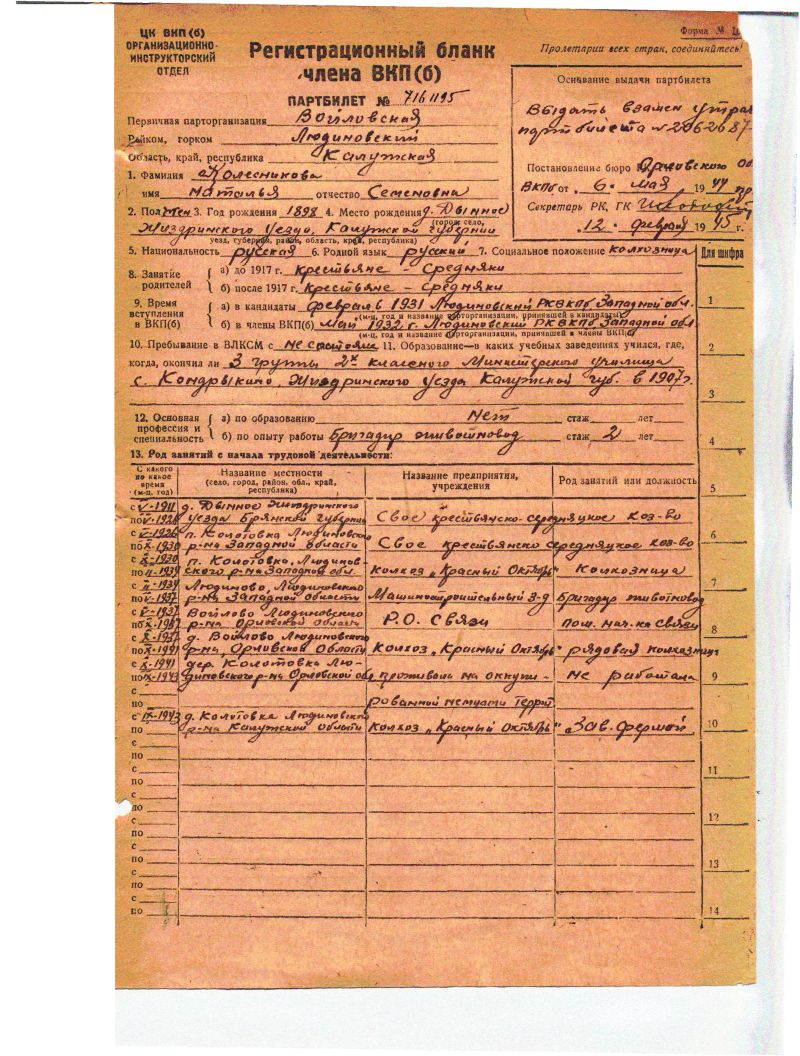 ЦК ВКП(б)
ОРГАНИЗАЦИОННО-
ИНСТРУКТОРСКИЙ
ОТДЕЛ
Регистрационный бланк
члена ВКП(б)
ПАРТБИЛЕТ № 7161195
Форма №
Пролетарии всех стран, соединяйтесь!
Основание выдачи партбилета
Выдать взамен утрач
партбилета № 2062687
Постановление бюро Орловского Об
ВКПб от „ 6 „ мая 1944 пр.
Секретарь РК, ГК
„ 12 „ февраля 1945 г.
Первичная парторганизация Войловская
Райком, горком Людиновский
Область, край, республика Калужская
1. Фамилия Колесникова
имя Наталья отчество Семеновна
2. Пол Жен 3. Год рождения 1898 4. Место рождения д. Дынное
(город, село,
Жиздринского уезда, Калужской губернии
уезд, губерния, район, область, край, республика)
5. Национальность русская 6. Родной язык русский 7. Социальное положение колхозница
8. Занятие родителей
а) до 1917 г. крестьяне - Средняки
б) после 1917 г. крестьяне - Средняки
9. Время вступления в ВКП(б)
а) в кандидаты февраль 1931 Людиновский РКВКПб Западной обл.
(м-ц, год и название парторганизации, принявшей в кандидаты)
б) в члены ВКП(б) май 1932 г. Людиновский РКВКПб Западной обл
(м-ц, год и название парторганизации, принявшей в члены ВКП(б)
10. Пребывание в ВЛКСМ с не состояла 11. Образование—в каких учебных заведениях учился, где,
когда, окончил ли 3 группы 2х класного Министерского училища
с. Кондрыкино, Жиздринского уезда Калужской губ. в 1907 г.
12. Основная профессия и специальность
а) по образованию нет стаж лет
б) по опыту работы Бригадир животновод стаж 2 лет
13. Род занятий с начала трудовой деятельности:
С какого по какое время (м-ц, год)
Название местности (село, город, район, обл., край, республика)
Название предприятия, учреждения
Род занятий или должность
с V-1911 д. Дынное Жиздринского
по V-1926 уезда Брянской губернии Свое крестьянско-середняцкое хоз-во
с V-1926 п. Колотовка Людиновско
по X-1930 р-на Западной области Свое крестьянско середняцкое хоз-во
с X-1930 п. Колотовка, Людинов-
по II-1934 ского р-на Западной обл. Колхоз „Красный Октябрь" Колхозница
с II-1934 Людиново, Людиновского
по V-1937 р-на Западной области Машиностроительный з-д Бригадир животновод
с V-1937 Войлово Людиновского
по X-1937 р-на Орловской область Р.О. Связи Пом. нач-ка связи
с X-1937 д. Войлово Людиновского
по X-1941 р-на, Орловской Области Колхоз „Красный Октябрь" рядовая колхозница
с X-1941 дер. Колотовка Лю-
по IX-1943 диновского р-на Орловской обл проживала на оккупи- не работала
с
по рованной немцами террит
с IX-1943 д. Колотовка Людиновского
по р-на Калужской области Колхоз „Красный Октябрь" Зав. фермой
с
по
с
по
с
по
с
по
с
по
с
по
с
по
Для шифра
1
2
3
4
5
6
7
8
9
10
11
12
13
14